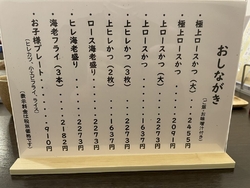 おしながき
(ご飯・お味噌汁付き)
極上ロースかつ(大)・・・2455円
極上ロースかつ・・・・・2091円
上ロースかつ(大)・・・・2273円
上ロースかつ・・・・・・1637円
上ヒレかつ(3枚)・・・・2273円
上ヒレかつ(2枚)・・・・1637円
ロース海老盛り・・・・・2273円
ヒレ海老盛り・・・・・・2273円
海老フライ(3本)・・・・2182円
お子様プレート・・・・・・910円
(ヒレカツ、小エビフライ、ライス)
(表示料金は税別価格です)